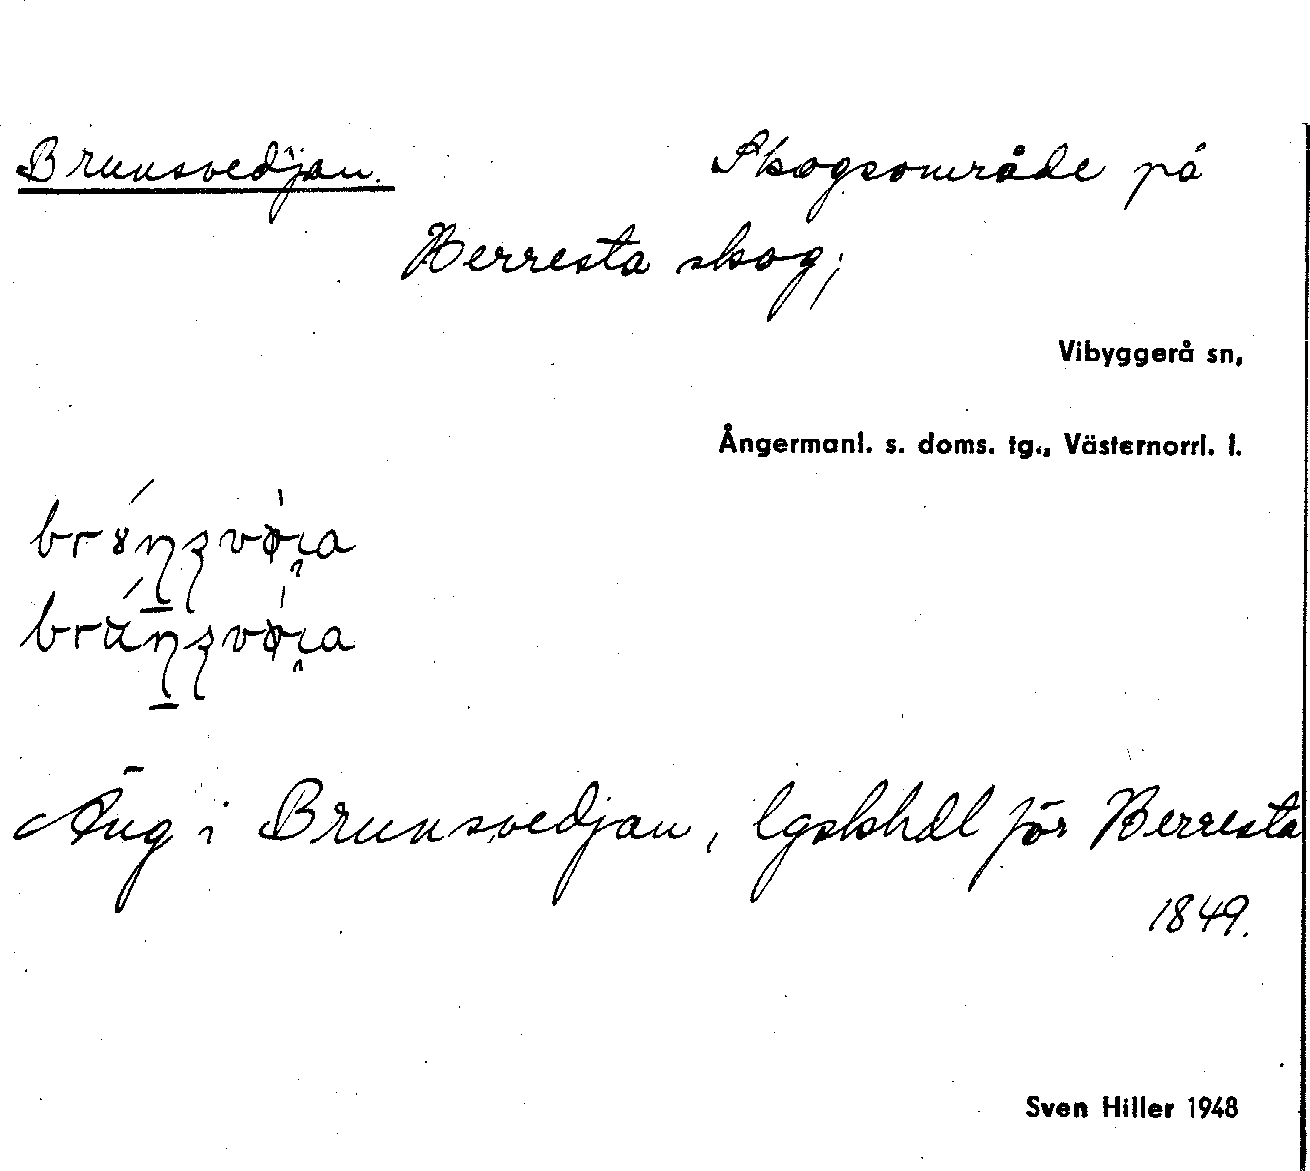 Brunsvedjan. Skogsområde på
Herresta skog;
Vibyggerå sn,
Ångermanl. s. doms. tg., Västernorrl. l.
Äng i Brunsvedjan, lgskhdl för Herresta
1849.
Sven Hiller 1948